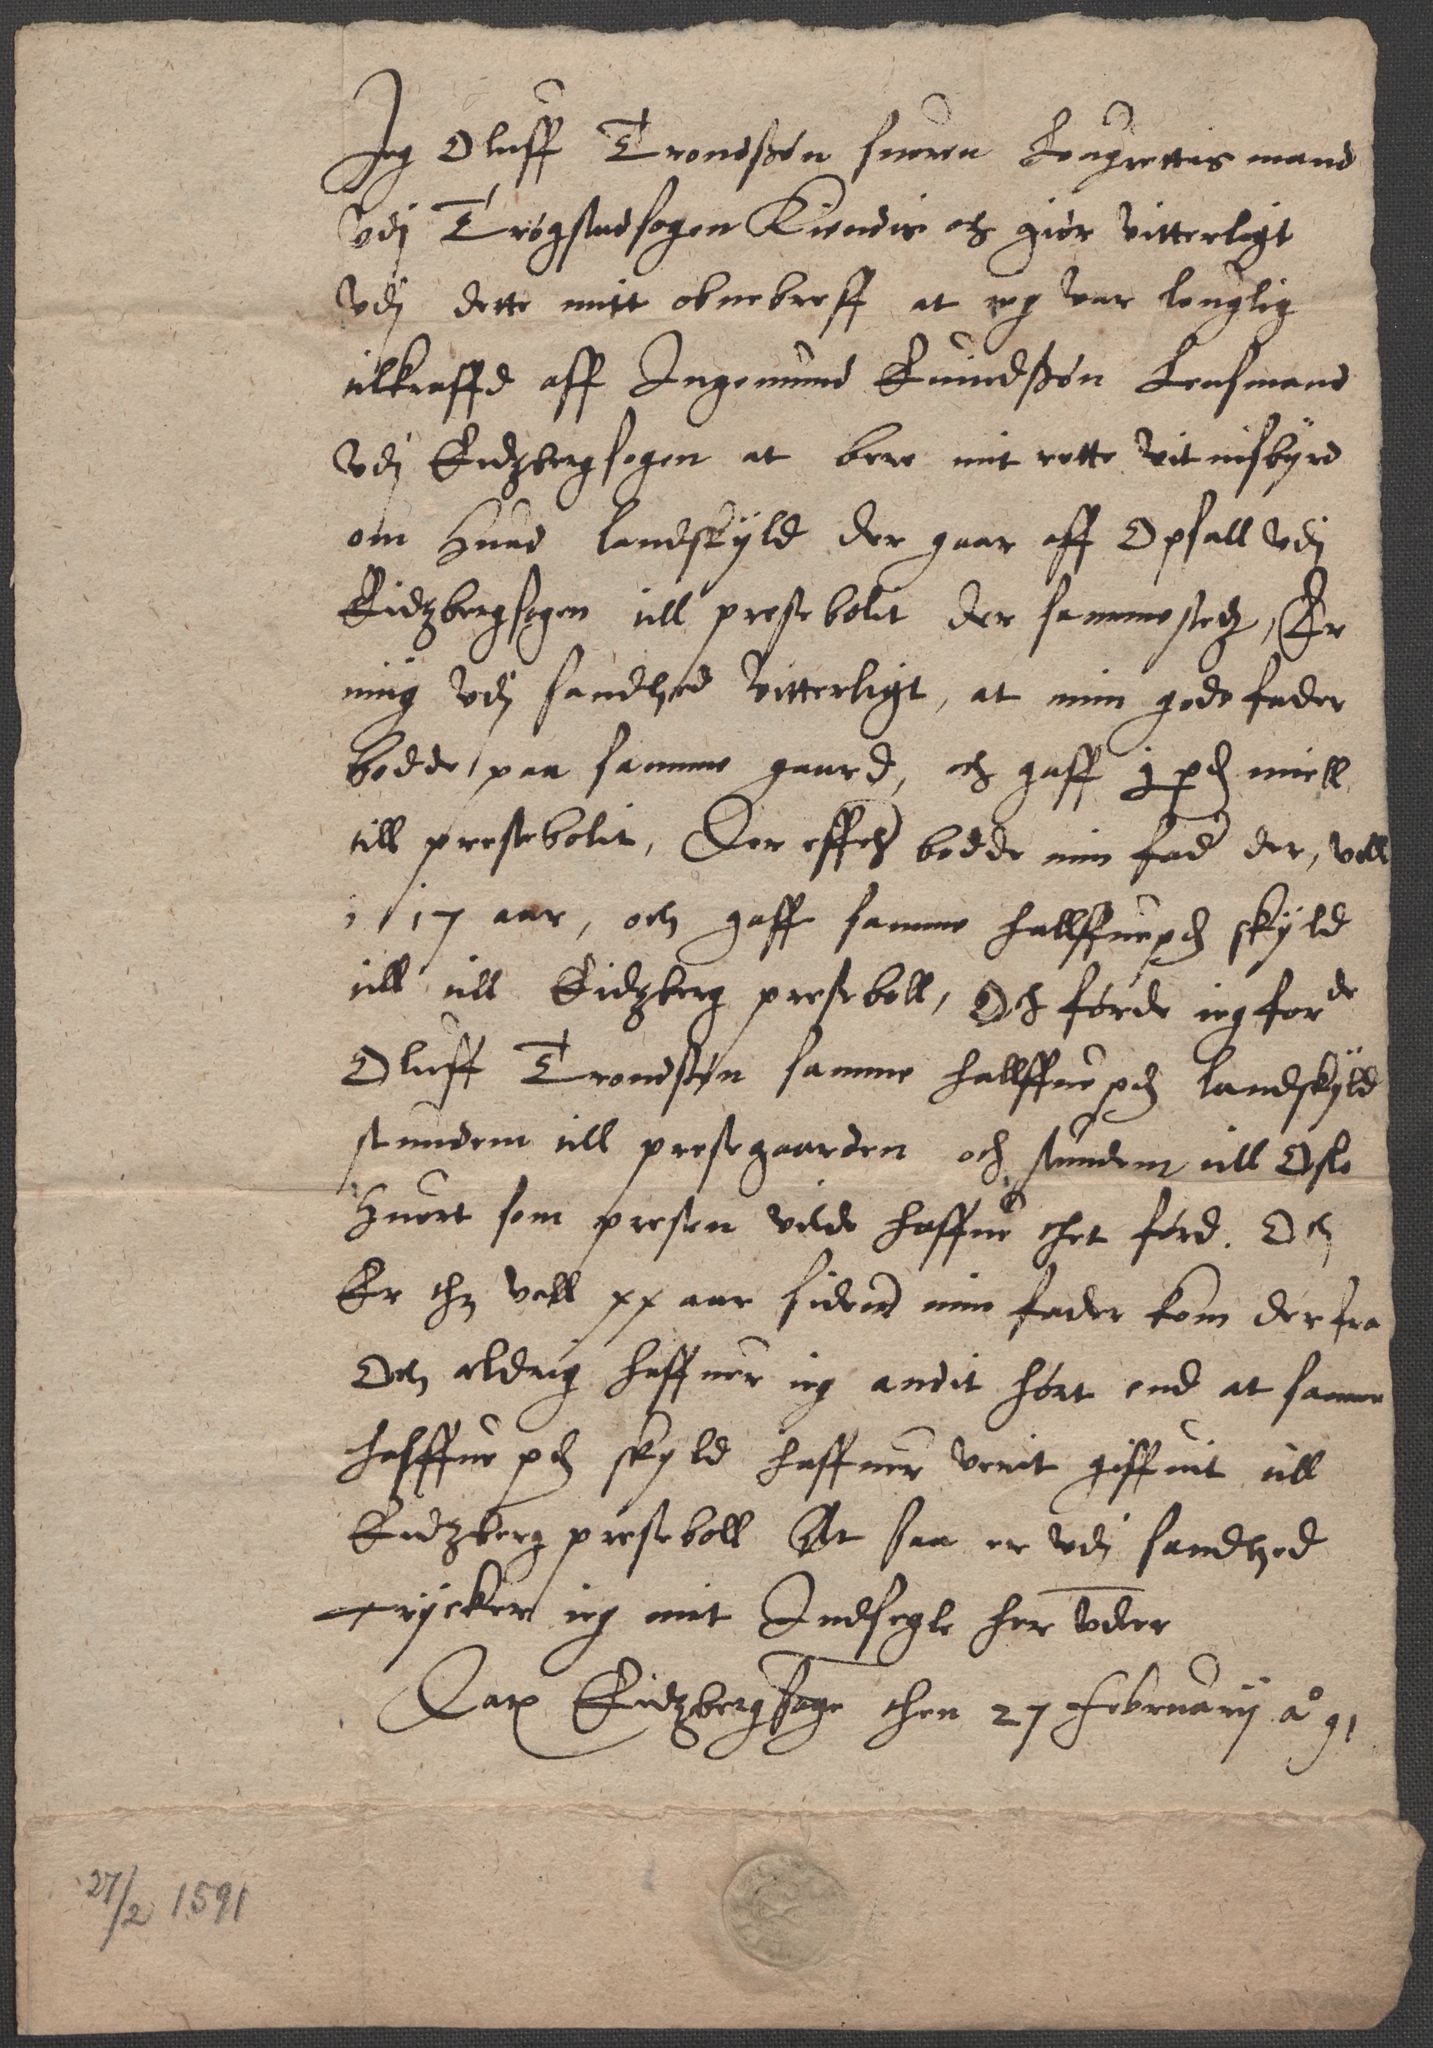 Jeg Oluff Trondßøn suoren Laugrettis mand
vdj Trøgstadsogen Kiendis och giør vitterligt
vdj dette mitt obnebreff at ieg var louglig
tilkraffd aff Ingemund Lensmand
vdj Eidzbergsogen at bere mit rette vitnisbyrd
om huad landskyld der gaar aff Opsall vdj
Eidzbergsogen till prestebolit der sammestedz, Er
mig vdj sandhed vitterligt, at min gode fader
bodde paa samme gaard, och gaff pd miell
till prestebolit, Der effther bodde min fader der, vell
17 aar, och gaff samme hallffue pd skyld
till till Eidzberg presteboll, Och førde ieg forde
Oluff Trondsøn samme hallffue pd landskyld
stundem till prestegaarden och stundem till Oslo
huort som presten vilde haffue thet førd. Och
Er thz vell xx aar siden min fader kom der fra
Och aldrig haffuer ieg andit hørt end at samme
halffue pd skyld haffuer verit giffuit till
Eidzberg presteboll At saa er vdj sandhed
trycker ieg mit Indsegle her vder
Datum Eidzbergsogn then 27 Februarij aº 91
27/2 1591